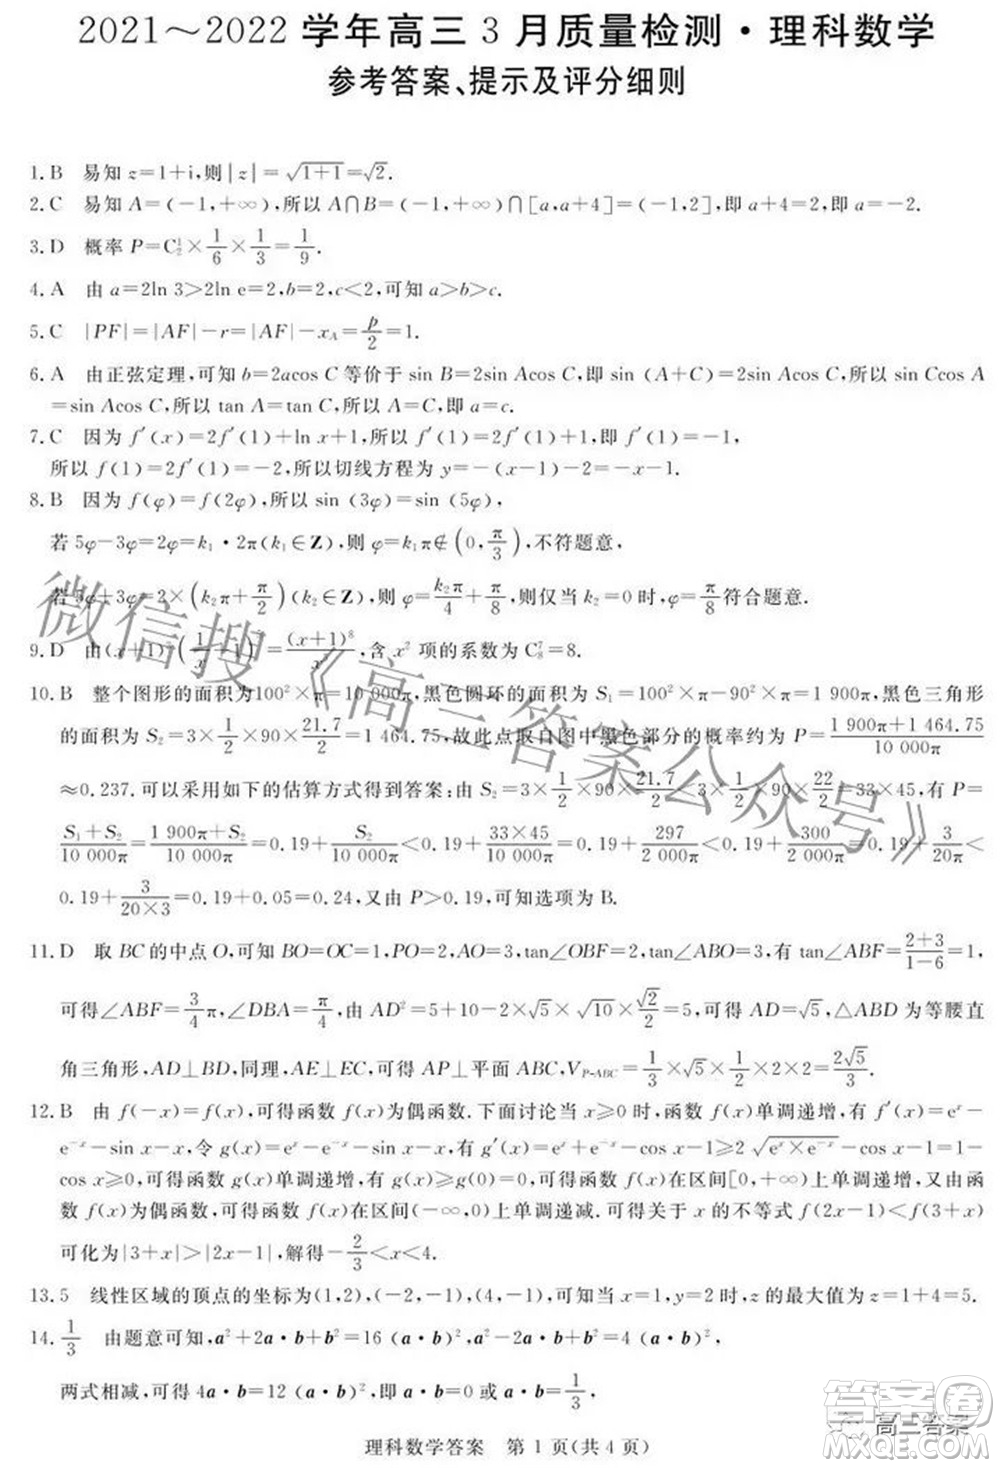 2021～2022 学年高三 3 月质量检测·理科数学
参考答案、提示及评分细则
1. B 易知 z=1+i,则|z|=√(1+1)=√2.
2. C 易知 A=(-1,+∞),所以 A∩B=(-1,+∞)∩[a,a+4]=(-1,2],即 a+4=2,即 a=-2.
3. D 概率 P=C₂¹×1/6×1/3=1/9.
4. A 由 a=2ln 3>2ln e=2,b=2,c<2,可知 a>b>c.
5. C |PF|=|AF|-r=|AF|-x_A=p/2=1.
6. A 由正弦定理,可知 b=2acos C 等价于 sin B=2sin Acos C,即 sin (A+C)=2sin Acos C,所以 sin Ccos A
=sin Acos C,所以 tan A=tan C,所以 A=C,即 a=c.
7. C 因为 f′(x)=2f′(1)+ln x+1,所以 f′(1)=2f′(1)+1,即 f′(1)=-1,
所以 f(1)=2f′(1)=-2,所以切线方程为 y=-(x-1)-2=-x-1.
8. B 因为 f(φ)=f(2φ),所以 sin (3φ)=sin (5φ),
若 5φ-3φ=2φ=k₁·2π(k₁∈Z),则 φ=k₁π∉(0,π/3),不符题意,
若 5φ+3φ=2×(k₂π+π/2)(k₂∈Z),则 φ=k₂π/4+π/8,则仅当 k₂=0 时,φ=π/8符合题意.
9. D 由(x+1)⁷(1/x+1)=(x+1)⁸/x,含 x² 项的系数为 C₈⁷=8.
10. B 整个图形的面积为100²×π=10 000π,黑色圆环的面积为 S₁=100²×π-90²×π=1 900π,黑色三角形
的面积为 S₂=3×1/2×90×21.7/2=1 464.75,故此点取自图中黑色部分的概率约为 P=(1 900π+1 464.75)/(10 000π)
≈0.237.可以采用如下的估算方式得到答案:由 S₂=3×1/2×90×21.7/2<3×1/2×90×22/2=33×45,有 P=
(S₁+S₂)/(10 000π)=(1 900π+S₂)/(10 000π)=0.19+S₂/(10 000π)<0.19+(33×45)/(10 000π)=0.19+297/(2 000π)<0.19+300/(2 000π)=0.19+3/(20π)<
0.19+3/(20×3)=0.19+0.05=0.24,又由 P>0.19,可知选项为 B.
11. D 取 BC 的中点 O,可知 BO=OC=1,PO=2,AO=3,tan∠OBF=2,tan∠ABO=3,有 tan∠ABF=(2+3)/(1-6)=1,
可得∠ABF=3/4π,∠DBA=π/4,由 AD²=5+10-2×√5×√10×√2/2=5,可得 AD=√5,△ABD 为等腰直
角三角形,AD⊥BD,同理,AE⊥EC,可得 AP⊥平面 ABC,V_P-ABC=1/3×√5×1/2×2×2=2√5/3.
12. B 由 f(-x)=f(x),可得函数 f(x)为偶函数.下面讨论当 x≥0 时,函数 f(x)单调递增,有 f′(x)=eˣ-
e⁻ˣ-sin x-x,令 g(x)=eˣ-e⁻ˣ-sin x-x,有 g′(x)=eˣ+e⁻ˣ-cos x-1≥2√(eˣ×e⁻ˣ)-cos x-1=1-
cos x≥0,可得函数 g(x)单调递增,可得 g(x)≥g(0)=0,可得函数 f(x)在区间[0,+∞)上单调递增,由函数
f(x)为偶函数,可得函数 f(x)在区间(-∞,0]上单调递减.可得关于 x 的不等式 f(2x-1)<f(3+x)
可化为|3+x|>|2x-1|,解得-2/3<x<4.
13. 5 线性区域的顶点的坐标为(1,2),(-2,-1),(4,-1),可知当 x=1,y=2 时,z 的最大值为 z=1+4=5.
14. 1/3 由题意可知,a²+2a·b+b²=16 (a·b)²,a²-2a·b+b²=4 (a·b)²,
两式相减,可得 4a·b=12(a·b)²,即 a·b=0 或 a·b=1/3,
理科数学答案 第 1 页(共 4 页)
微信搜《高三答案公众号》
高三答案
答案圈
MXQE.COM